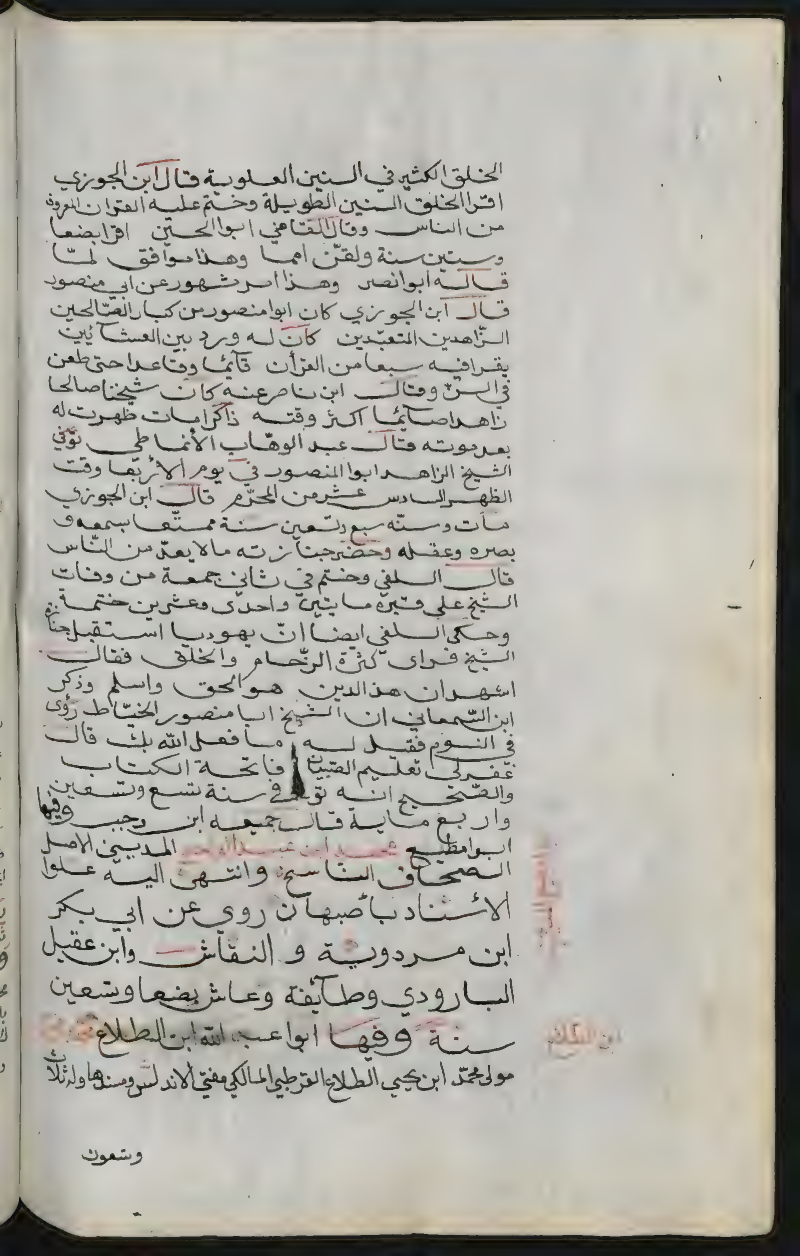 الخلق الكثير في السنين العلوية قال ابن الجوزي
اقرا الخلق السنين الطويلة وختم عليه القران الوف
من الناس وقال القاضي ابوا الحسين اقرا بضعا
وستين سنة ولقن امما وهذا موافق لما
قاله ابوا نصر وهذا امر شهور عن ابي منصور
قال ابن الجوزي كان ابوا منصور من كبار الصالحين
الزاهدين المتعبدين كان له ورد بين العشائين
يقرا فيه سبعا من القران قآئما وقاعدا حتى طعن
في السن وقال ابن ناصر عنه كان شيخا صالحا
زاهدا صآئما اكثر وقته ذا كرامات ظهرت له
بعد موته قال عبد الوهاب الأنماطي توفي
الشيخ الزاهد ابوا المنصور في يوم الأربعا وقت
الظهر السادس عشر من المحرم قال ابن الجوزي
مات وسنه سبع وتسعين سنة ممتعا بسمعه و
بصره وعقله وحضر جنازته ما لا يعد من الناس
قال السلفي وختم في ثاني جمعة من وفات
الشيخ على قبره مايتين واحدى وعشرين ختمة
وحكى السلفي ايضا ان يهوديا استقبل جنازة
الشيخ فراى كثرة الزحام والخلق فقال
اشهد ان هذ الدين هو الحق واسلم وذكر
ابن السمعاني ان الشيخ ابا منصور الخياط رؤى
في النوم فقيل له ما فعل الله بك قال
غفر لي تعليم الصبيان فاتحة الكتاب
والصحيح انه توفي في سنة تسع وتسعين
واربع ماية قال جميعه ابن رجب وفيها
ابوا مطيع محمد ابن عبد الواحد المديني الاصل
الصحاف الناسخ وانتهى اليه علوا
الأسناد بأصبهان روى عن ابي بكر
ابن مردوية و النقاش وابن عقيل
البارودي وطآئفة وعاش بضعا وتسعين
سنة وفيها ابوا عبد الله ابن الطلاع
مولى محمد ابن يحيى الطلاع القرطبي المالكي مفتي الاندلس ومسندها وله ثلاث
وتسعون
ابن الطلاع